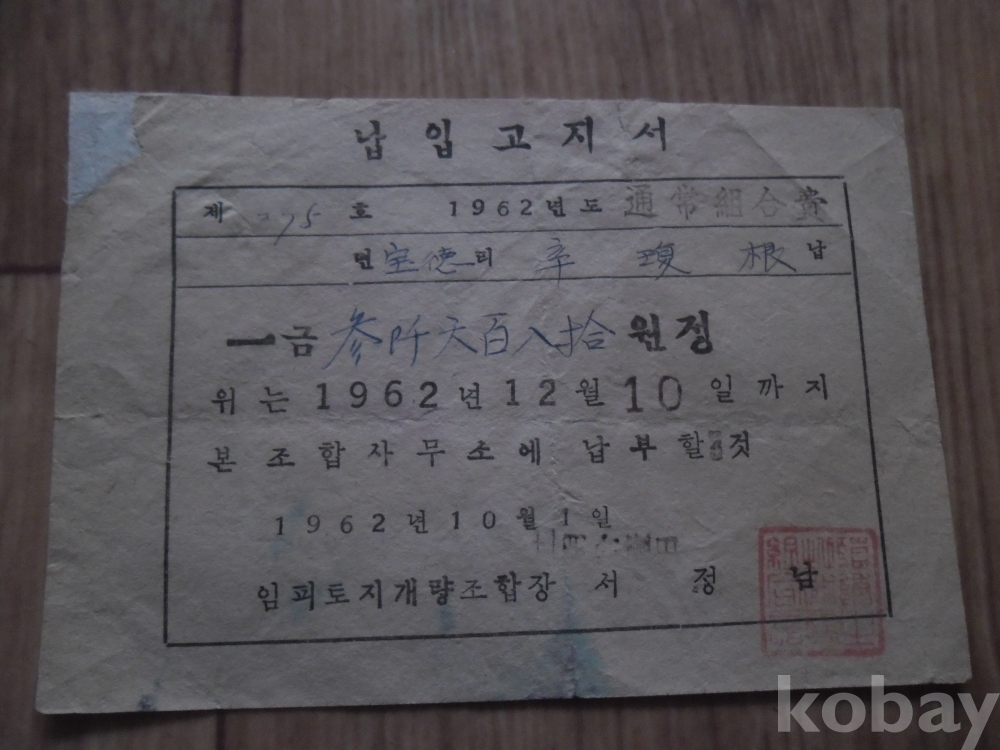 납입고지서
제 75 호 1962년도 通常組合費
면 宝德 리 辛 瓊 根 납
一금 参阡六百八拾 원정
위는 1962년 12월 10일까지
본조합사무소에 납부할 것
1962년 10월 1일
임피토지개량조합장 서 정
kobay